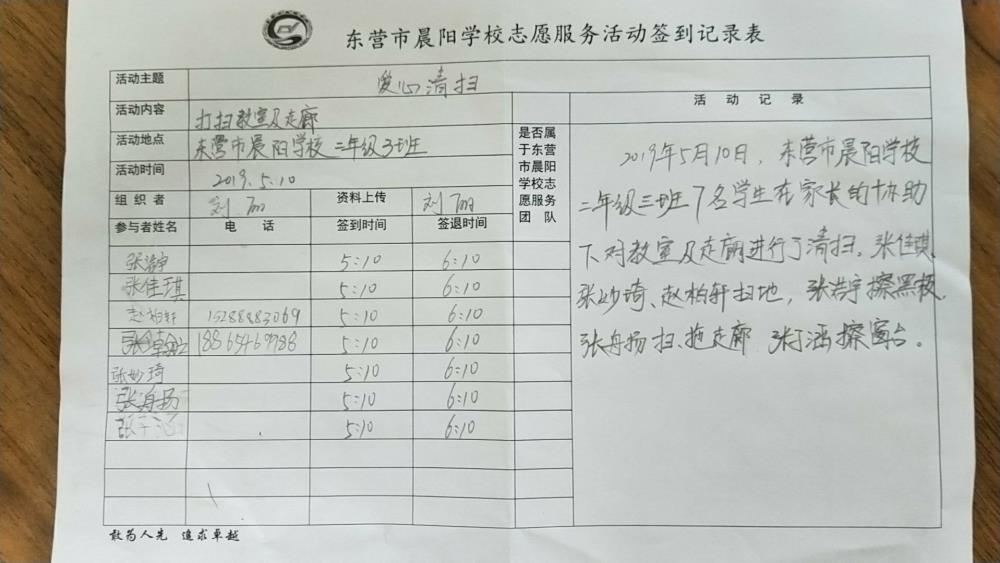 东营市晨阳学校志愿服务活动签到记录表
活动主题 爱心清扫
活动内容 打扫教室及走廊
活动地点 东营市晨阳学校 二年级3班
活动时间 2019.5.10
组织者 刘丽 资料上传 刘丽
参与者姓名 电话 签到时间 签退时间
张浩宇 5:10 6:10
张佳琪 5:10 6:10
赵柏轩 15288883069 5:10 6:10
5:10 6:10
张妙琦 5:10 6:10
张舟扬 5:10 6:10
张于涵 5:10 6:10
是否属
于东营
市晨阳
学校志
愿服务
团队
活动记录
2019年5月10日,东营市晨阳学校
二年级三班7名学生在家长的协助
下对教室及走廊进行了清扫。张佳琪、
张妙琦、赵柏轩扫地,张浩宇擦黑板,
张舟扬扫、拖走廊 张于涵擦窗台。
敢为人先 追求卓越